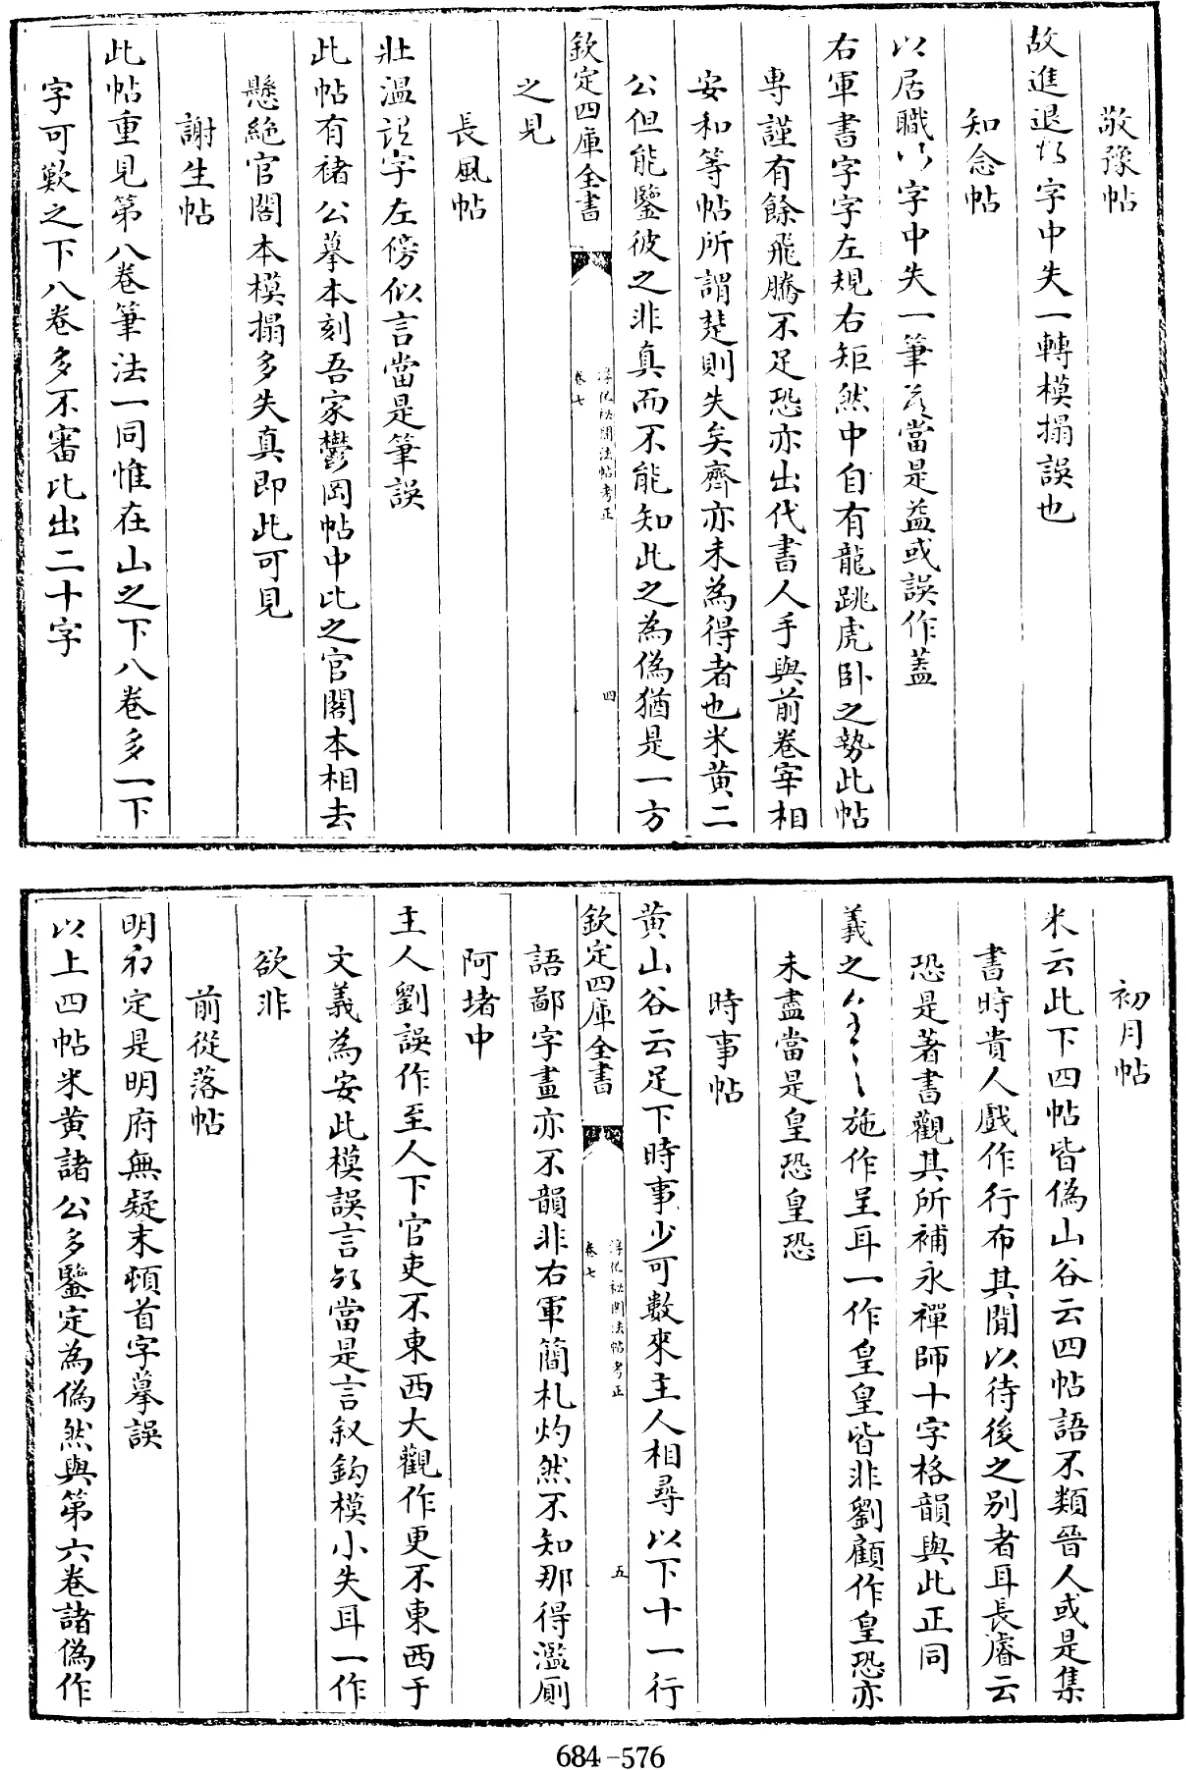 敬豫帖
故進退字中失一轉模搨誤也
知念帖
以居職字中失一筆當是益或誤作蓋
右軍書字字左規右矩然中自有龍跳虎卧之勢此帖
專謹有餘飛騰不足恐亦出代書人手與前卷宰相
安和等帖所謂楚則失矣齊亦未為得者也米黄二
公但能鑒彼之非真而不能知此之為偽猶是一方
欽定四庫全書
淳化秘閣法帖考正
卷七
四
之見
長風帖
壯温字左傍似言當是筆誤
此帖有褚公摹本刻吾家鬱岡帖中比之官閣本相去
懸絶官閣本模搨多失真即此可見
謝生帖
此帖重見第八卷筆法一同惟在山之下八卷多一下
字可歎之下八卷多不審比出二十字
初月帖
米云此下四帖皆偽山谷云四帖語不類晉人或是集
書時貴人戲作行布其閒以待後之別者耳長濬云
恐是著書觀其所補永禪師十字格韻與此正同
羲之施作呈耳一作皇皇皆非劉顧作皇恐亦
未盡當是皇恐皇恐
時事帖
黄山谷云足下時事少可數來主人相尋以下十一行
欽定四庫全書
淳化秘閣法帖考正
卷七
五
語鄙字畫亦不韻非右軍簡札灼然不知那得濫厠
阿堵中
主人劉誤作至人下官吏不東西大觀作更不東西于
文義為安此模誤言當是言叙鈎模小失耳一作
欲非
前從落帖
明定是明府無疑末頓首字摹誤
以上四帖米黄諸公多鑒定為偽然與第六卷諸偽作
684-576